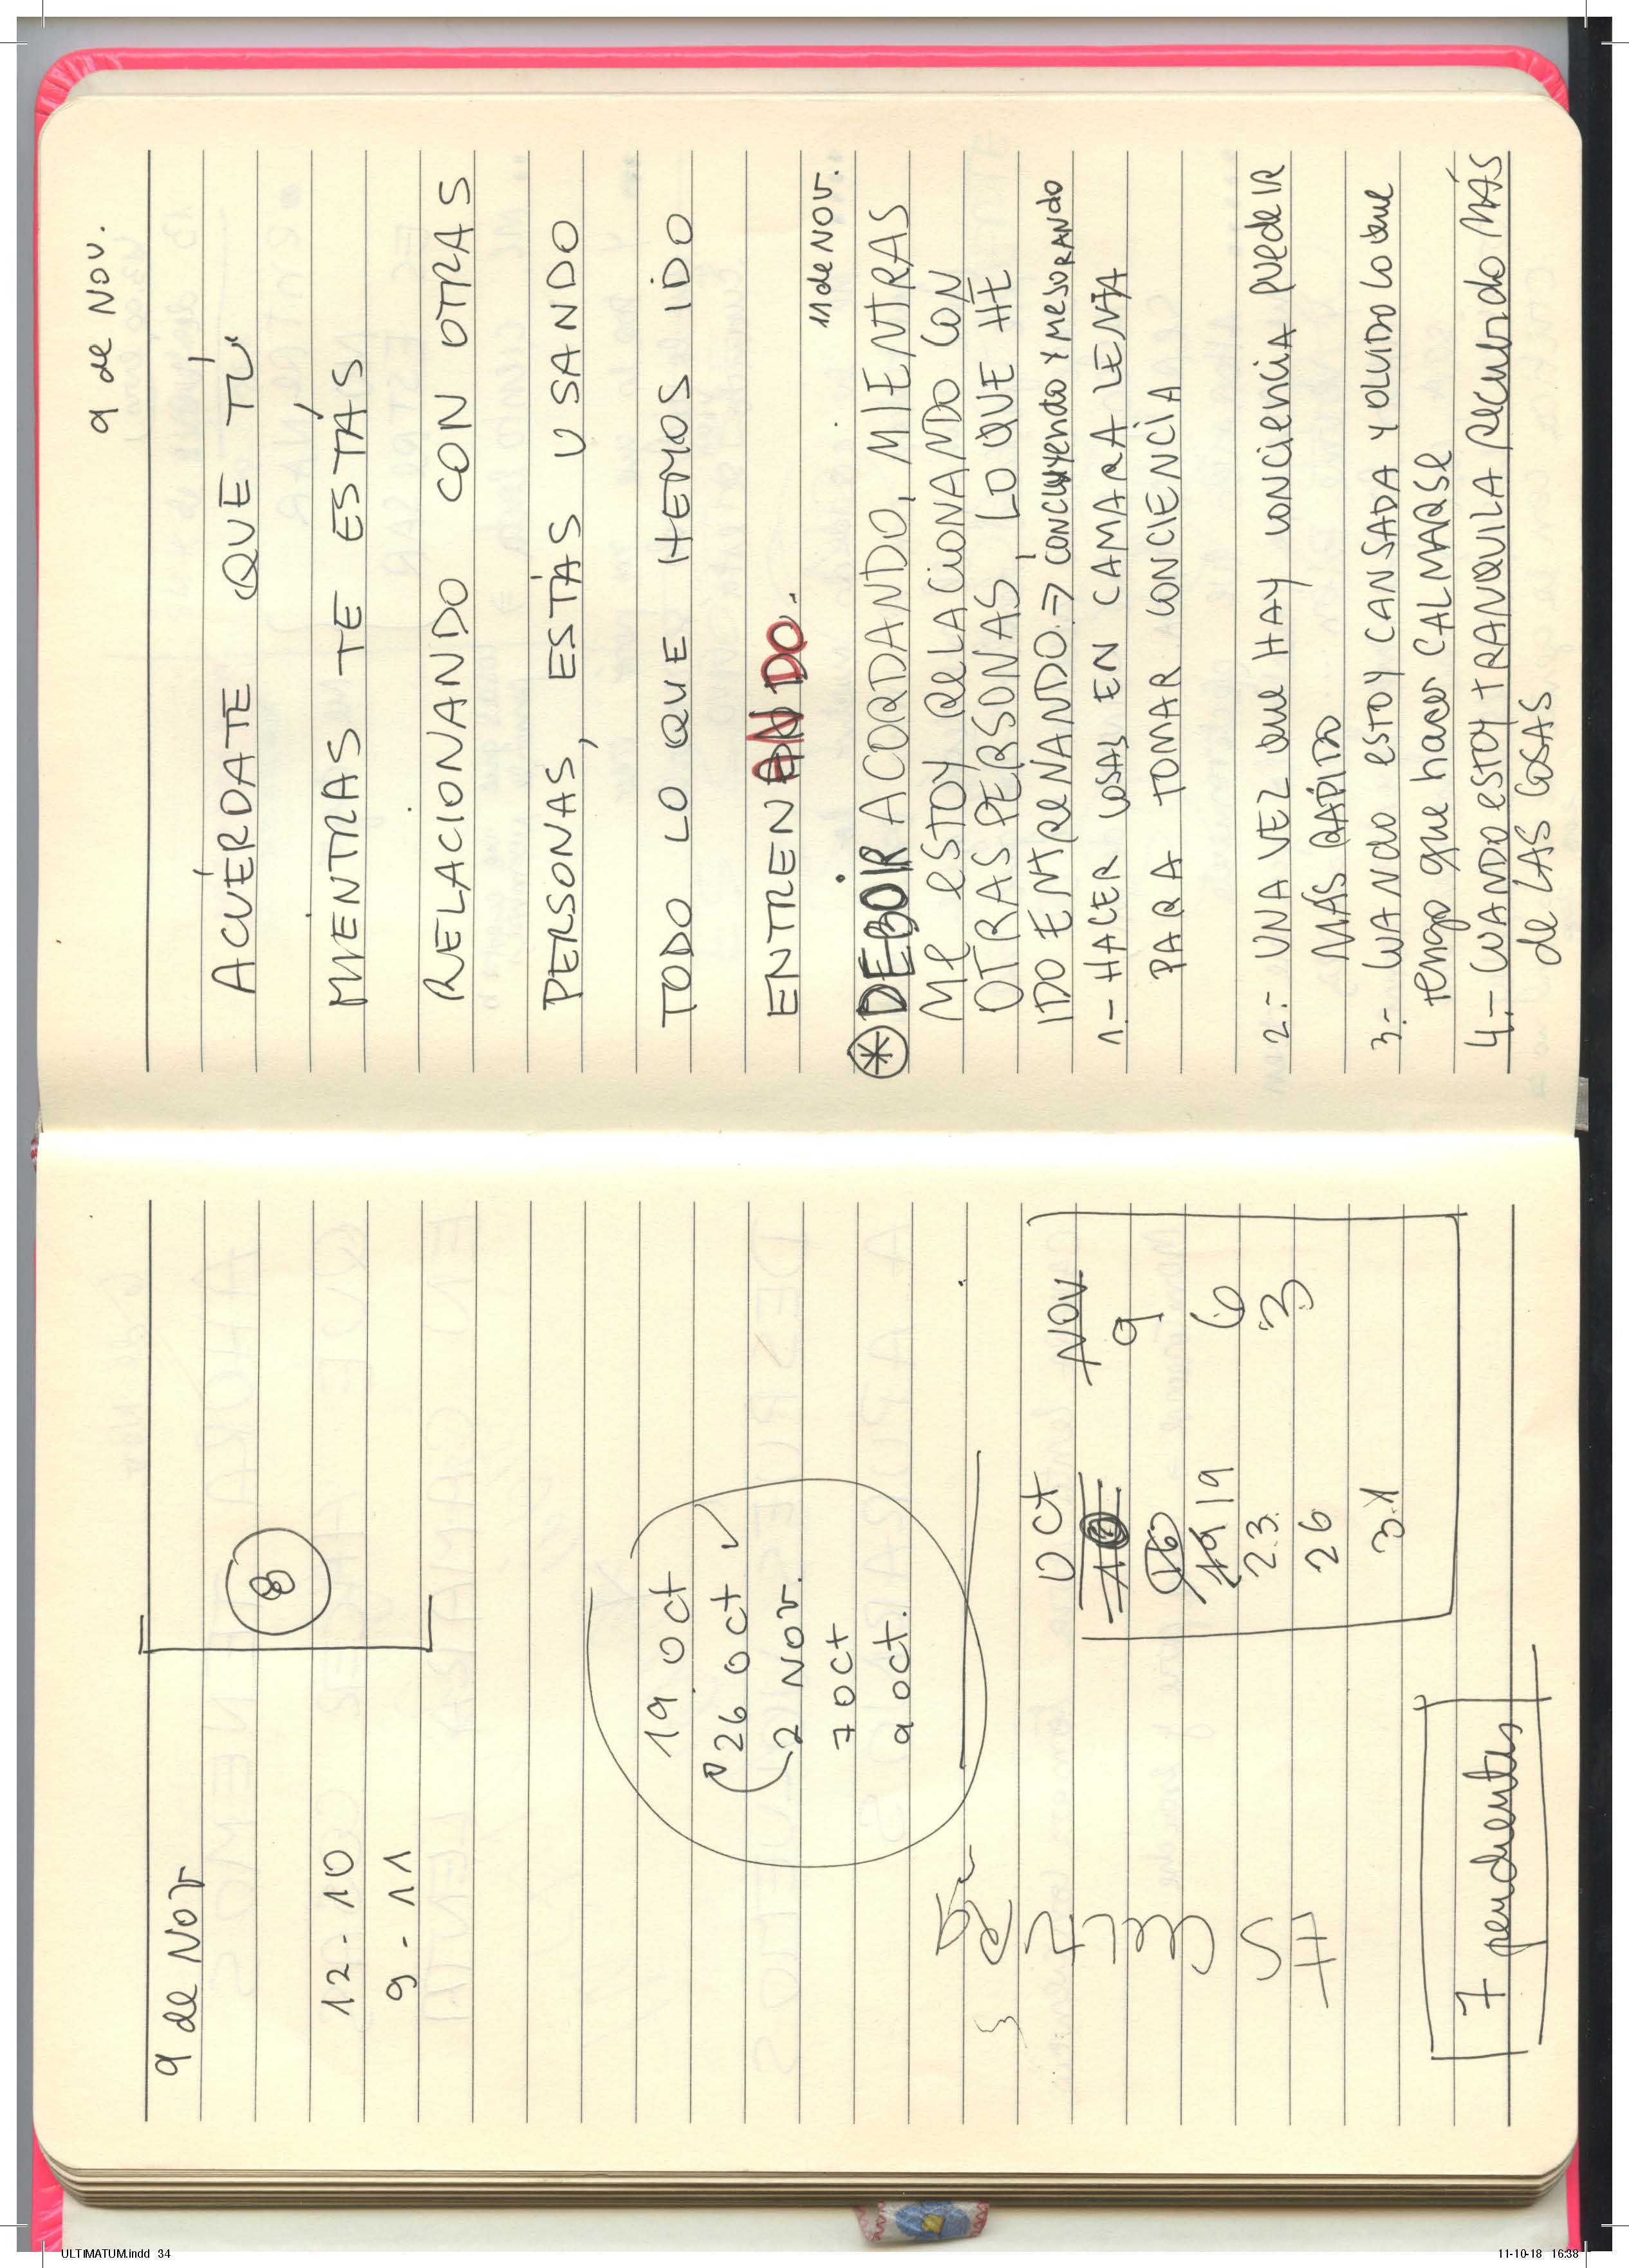 9 de Nov
8
12-10
9-11
19 oct
26 oct
2 Nov.
7 oct
9 oct.
OCT NOV.
16 9
19 19 6
23. 3
26
31
7 pendientes
9 de Nov.
ACUÉRDATE QUE TÚ
MIENTRAS TE ESTÁS
RELACIONANDO CON OTRAS
PERSONAS, ESTÁS USANDO
TODO LO QUE HEMOS IDO
ENTRENANDO.
11 de NOV.
* DEBO IR ACORDANDO, MIENTRAS
ME ESTOY RELACIONANDO CON
OTRAS PERSONAS, LO QUE HE
IDO ENTRENANDO. => CONCLUYENDO Y MEJORANDO
1.- HACER COSAS EN CAMARA LENTA
PARA TOMAR CONCIENCIA
2.- UNA VEZ que HAY conciencia puede IR
MÁS RÁPIDO
3.- CUANdo estoy CANSADA y OLVIDO lo que
tengo que hacer CALMARSE
4.- CUANDO ESTOY TRANQUILA RECUERDO MÁS
de LAS COSAS
ULTIMATUM.indd 34
11-10-18 16:38